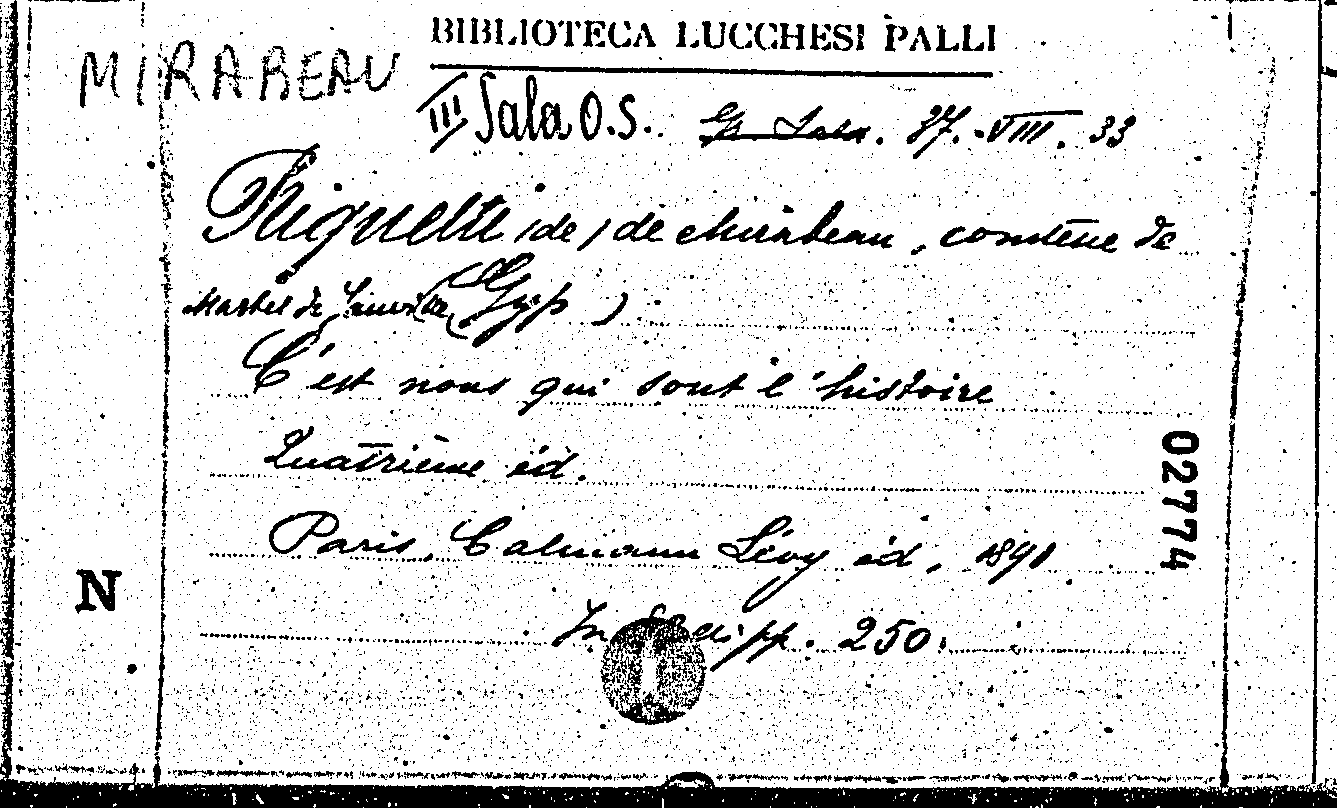 BIBLIOTECA LUCCHESI PALLI
MIRABEAU
III Sala O.S. Sala. 37.-VIII. 33
Riquetti (de) de Mirabeau, comtesse de
Martel de Janville (Gyp)
C'est nous qui sont l'histoire
Quatrième éd.
Paris, Calmann Lévy éd, 1891
In pp. 250.
027774
N